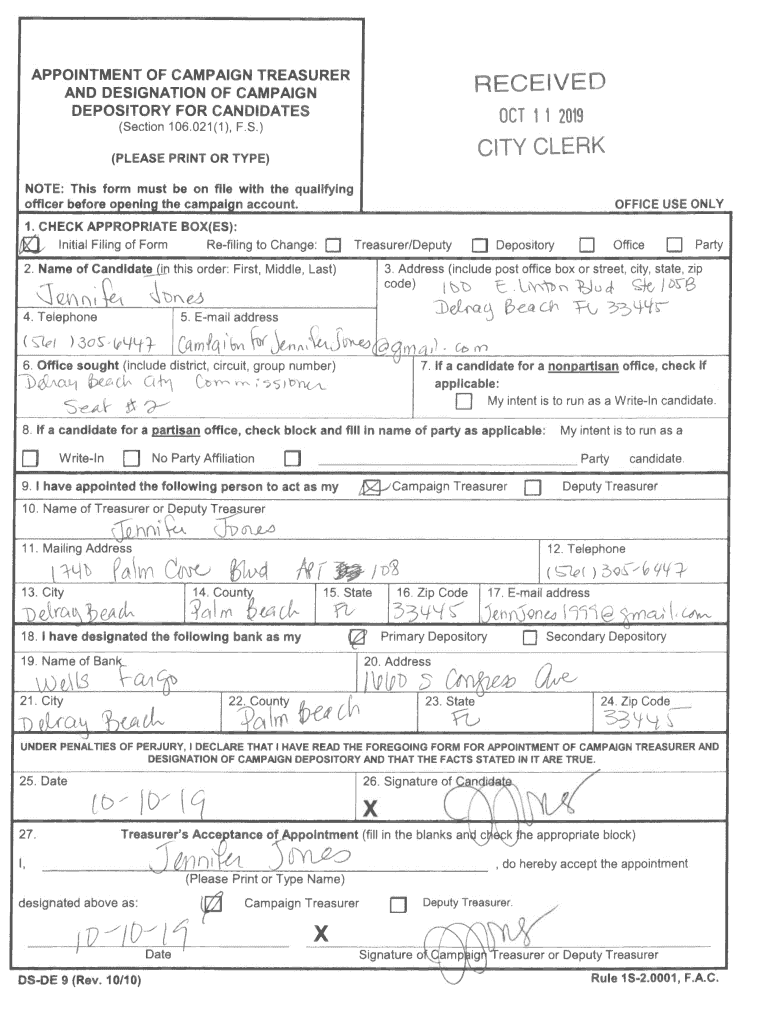 APPOINTMENT OF CAMPAIGN TREASURER
AND DESIGNATION OF CAMPAIGN
DEPOSITORY FOR CANDIDATES
(Section 106.021(1), F.S.)
(PLEASE PRINT OR TYPE)
NOTE: This form must be on file with the qualifying
officer before opening the campaign account.
RECEIVED
OCT 11 2019
CITY CLERK
OFFICE USE ONLY
1. CHECK APPROPRIATE BOX(ES):
Initial Filing of Form Re-filing to Change: Treasurer/Deputy Depository Office Party
2. Name of Candidate (in this order: First, Middle, Last)
Jennifer Jones
3. Address (include post office box or street, city, state, zip
code) 100 E. Linton Blvd Ste 105B
Delray Beach FL 33445
4. Telephone
(561) 305-6447
5. E-mail address
CampaignforJenniferJones@gmail.com
6. Office sought (include district, circuit, group number)
Delray Beach City Commissioner
Seat #2
7. If a candidate for a nonpartisan office, check if
applicable:
My intent is to run as a Write-In candidate.
8. If a candidate for a partisan office, check block and fill in name of party as applicable: My intent is to run as a
Write-In No Party Affiliation Party candidate.
9. I have appointed the following person to act as my Campaign Treasurer Deputy Treasurer
10. Name of Treasurer or Deputy Treasurer
Jennifer Jones
11. Mailing Address
1740 Palm Cove Blvd APT 108
12. Telephone
(561) 305-6447
13. City
Delray Beach
14. County
Palm Beach
15. State
FL
16. Zip Code
33445
17. E-mail address
JennJones1999@gmail.com
18. I have designated the following bank as my Primary Depository Secondary Depository
19. Name of Bank
Wells Fargo
20. Address
1660 S Congress Ave
21. City
Delray Beach
22. County
Palm Beach
23. State
FL
24. Zip Code
33445
UNDER PENALTIES OF PERJURY, I DECLARE THAT I HAVE READ THE FOREGOING FORM FOR APPOINTMENT OF CAMPAIGN TREASURER AND
DESIGNATION OF CAMPAIGN DEPOSITORY AND THAT THE FACTS STATED IN IT ARE TRUE.
25. Date
10-10-19
26. Signature of Candidate
X
27. Treasurer's Acceptance of Appointment (fill in the blanks and check the appropriate block)
I, Jennifer Jones , do hereby accept the appointment
(Please Print or Type Name)
designated above as: Campaign Treasurer Deputy Treasurer.
10-10-19 X
Date Signature of Campaign Treasurer or Deputy Treasurer
DS-DE 9 (Rev. 10/10) Rule 1S-2.0001, F.A.C.